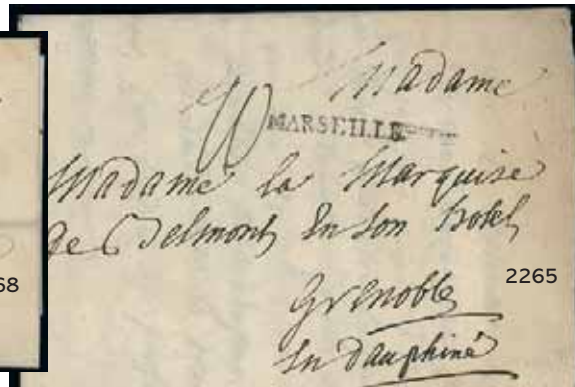 Madame
MARSEILLE
Madame la Marquise
de Belmont En son hotel
2265
68
Grenoble
En dauphiné